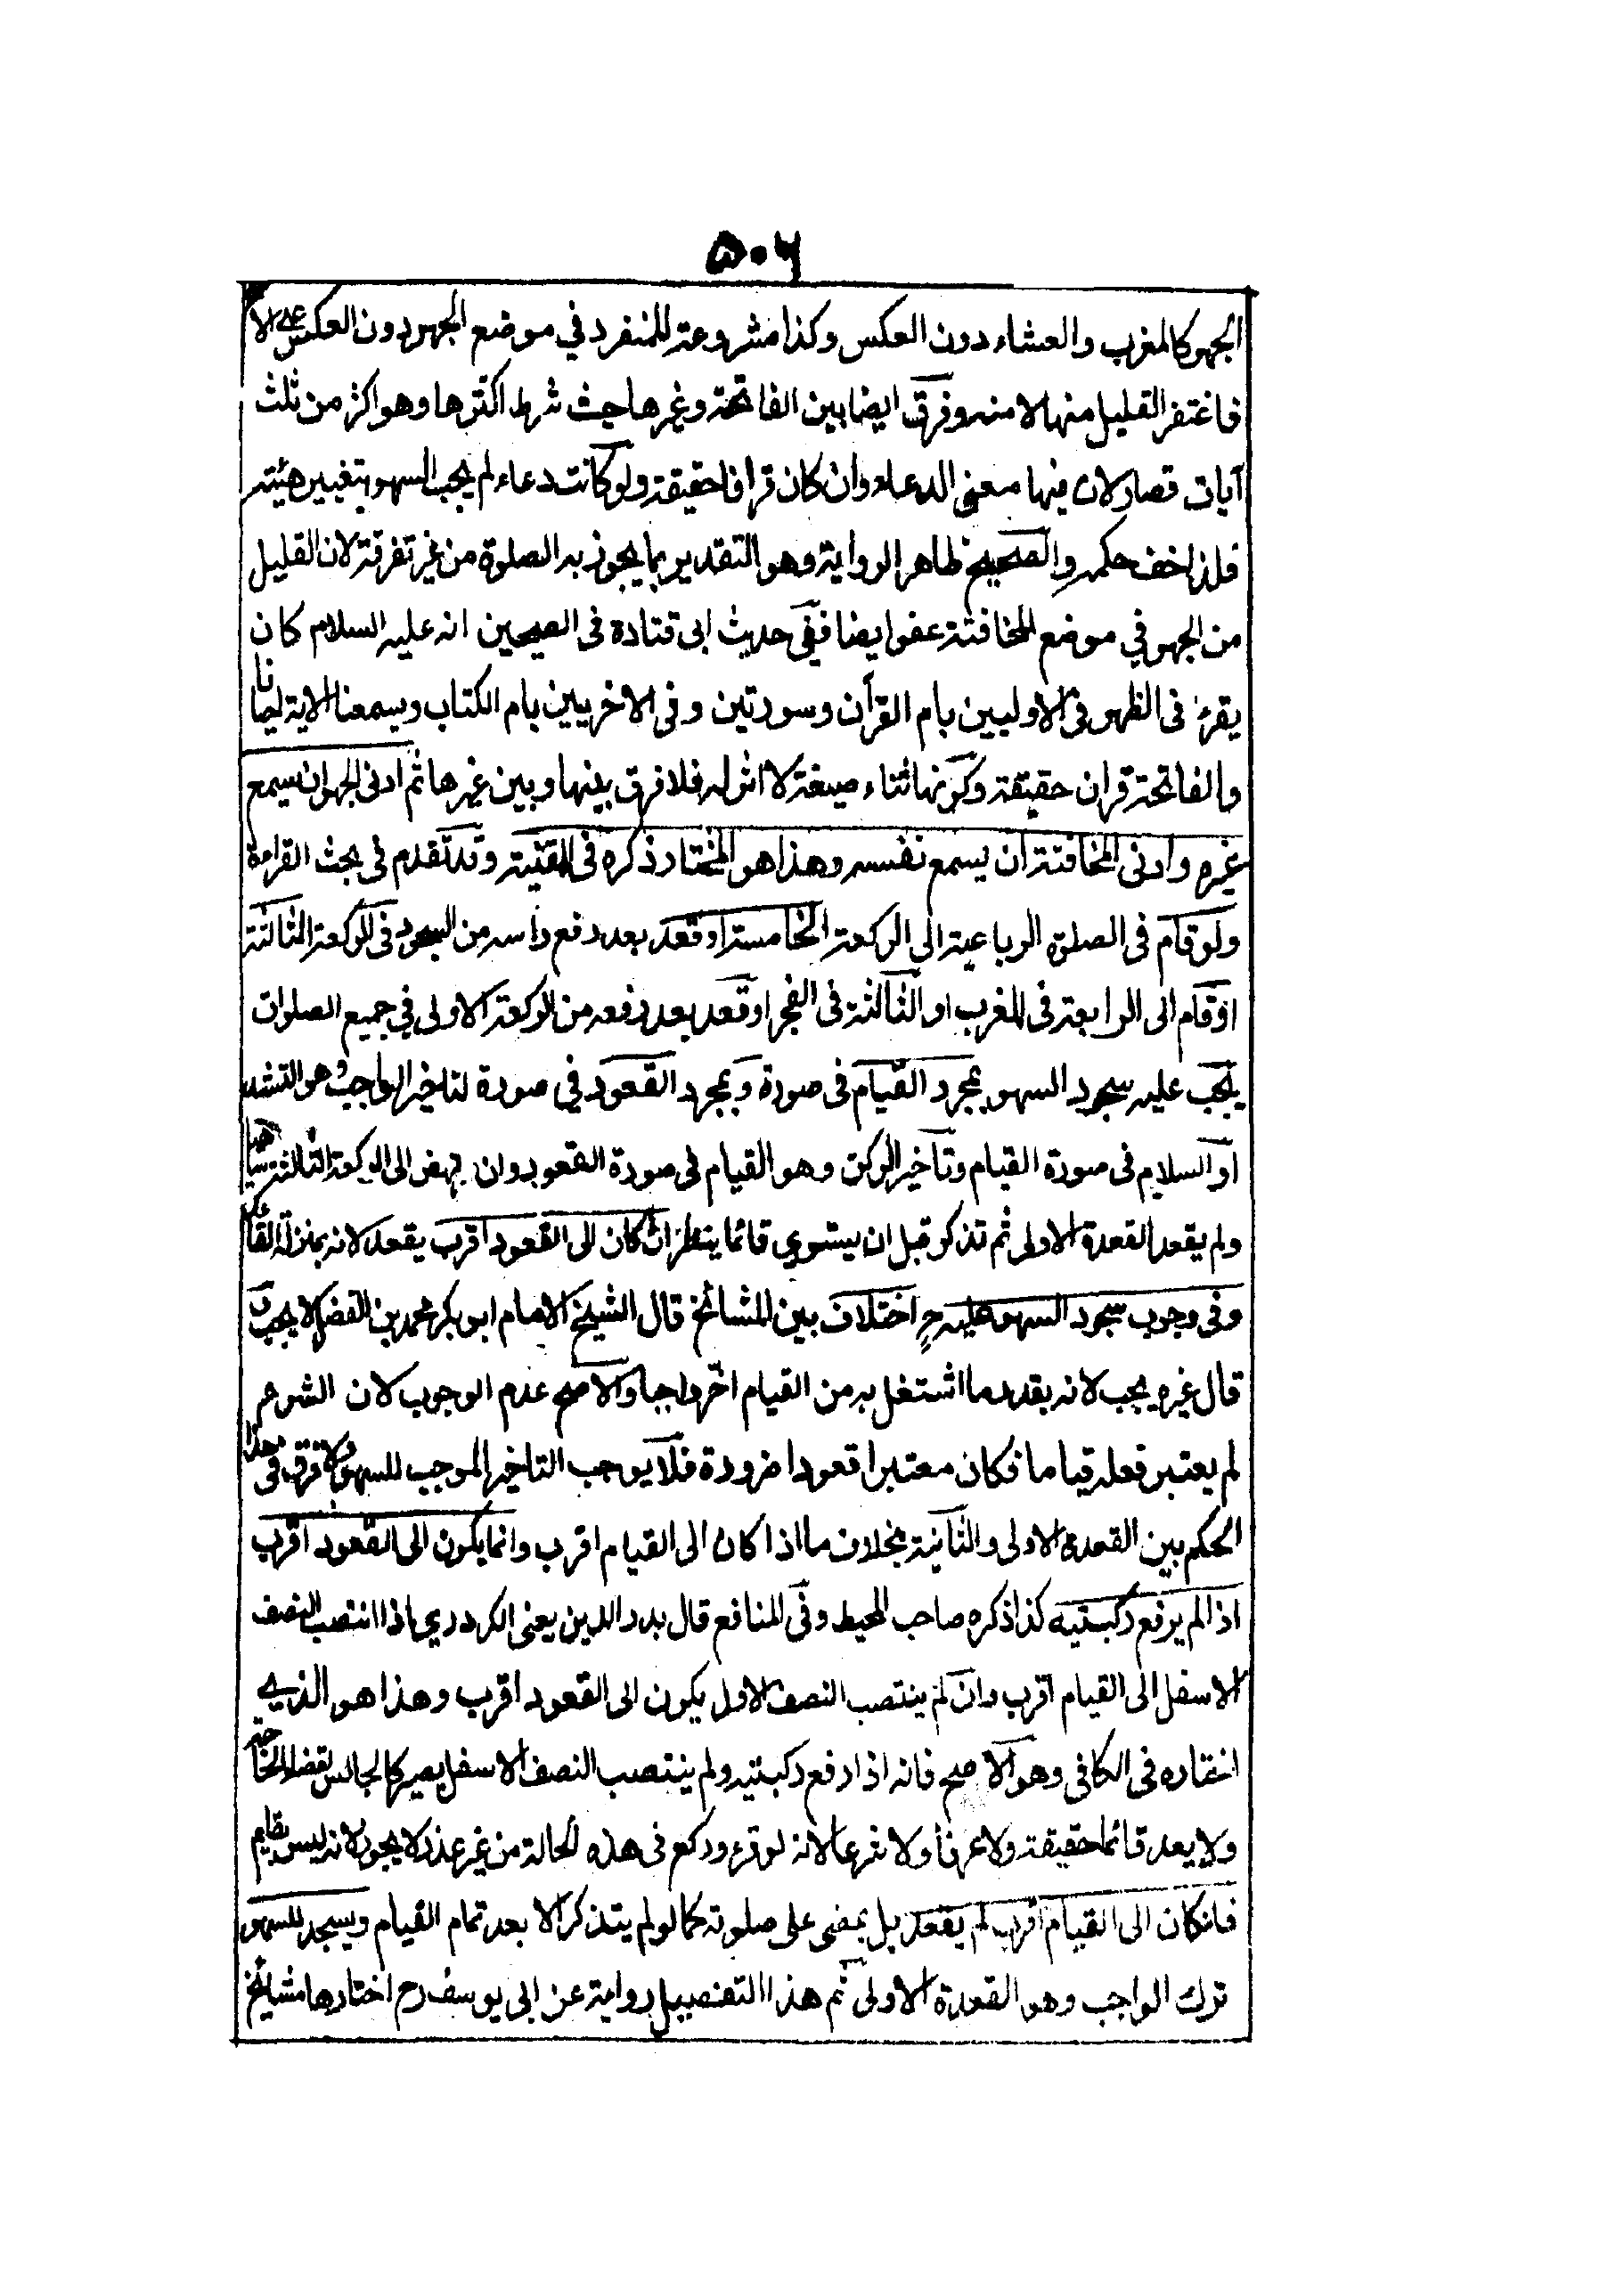 ۵۰۶
الجهر كالمغرب والعشاء دون العكس وكذا مشروعة للمنفرد في موضع الجهر دون العكس على الا
فاغتفر القليل منها لا منه وفرق ايضا بين الفاتحة وغيرها حيث شرط اكثرها وهو اكثر من ثلث
آيات قصار لان فيها معنى الدعاء وان كان قرانا حقيقة ولو كانت دعاء لم يجب السهو بتغيير هيئته
فلذا خف حكمه والصحيح ظاهر الرواية وهو التقدير بما يجوز به الصلوة من غير تفرقة لان القليل
من الجهر في موضع المخافتة عفو ايضا ففى حديث ابى قتادة فى الصحيحين انه عليه السلام كان
يقرء فى الظهر فى الاوليين بام القرآن وسورتين وفى الاخريين بام الكتاب ويسمعنا الاية احيانا
والفاتحة قران حقيقة وكونها ثناء صيغة لا اثر له فلا فرق بينها وبين غيرها ثم ادنى الجهر ان يسمع
غيره وادنى المخافتة ان يسمع نفسه وهذا هو المختار ذكره فى القنية وقد تقدم فى بحث القراءة
ولو قام فى الصلوة الرباعية الى الركعة الخامسة او قعد بعد رفع راسه من السجود فى الركعة الثالثة
او قام الى الرابعة فى المغرب او الثالثة فى الفجر او قعد بعد رفعه من الركعة الاولى في جميع الصلوات
يجب عليه سجود السهو بمجرد القيام فى صورة وبمجرد القعود في صورة لتاخير الواجب وهو التشهد
او السلام فى صورة القيام وتأخير الركن وهو القيام فى صورة القعود وان نهض الى الركعة الثالثة ساهيا
ولم يقعد القعدة الاولى ثم تذكر قبل ان يستوي قائما ينظر ان كان الى القعود اقرب يقعد لانه بمنزلة القاعد
وفى وجوب سجود السهو عليه ح اختلاف بين المشائخ قال الشيخ الامام ابو بكر محمد بن الفضل لا يجب و
قال غيره يجب لانه بقدر ما اشتغل به من القيام اخر واجبا والاصح عدم الوجوب لان الشرع
لم يعتبر فعله قياما فكان معتبرا قعودا ضرورة فلا يوجب التاخير الموجب للسهو ولا فرق فى هذا
الحكم بين القعدة الاولى والثانية بخلاف ما اذا كان الى القيام اقرب وانما يكون الى القعود اقرب
اذا لم يرفع ركبتيه كذا ذكره صاحب المحيط وفى المنافع قال بدر الدين يعنى الكردري اذا انتصب النصف
الاسفل الى القيام اقرب وان لم ينتصب النصف الاول يكون الى القعود اقرب وهذا هو الذي
اختاره فى الكافى وهو الاصح فانه اذا رفع ركبتيه ولم ينتصب النصف الاسفل يصير كالجالس لقضاء الحاجة
ولا يعد قائما حقيقة ولا عرفا ولا شرعا لانه لو قرء وركع فى هذه الحالة من غير عذر لا يجوز لانه ليس بقايم
فان كان الى القيام اقرب لم يقعد بل يمضى على صلوته كما لو لم يتذكر الا بعد تمام القيام ويسجد للسهو
ترك الواجب وهو القعدة الاولى ثم هذا التفصيل رواية عن ابى يوسف رح اختارها مشائخ